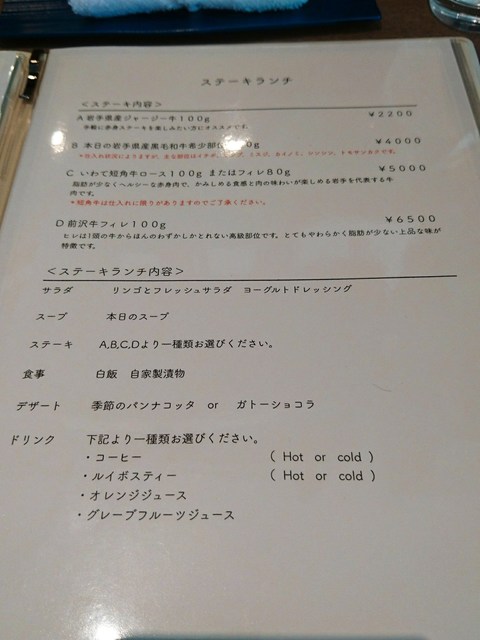 ステーキランチ
<ステーキ内容>
A 岩手県産ジャージー牛100g ￥2200
手軽に赤身ステーキを楽しみたい方にオススメです。
B 本日の岩手県産黒毛和牛希少部位 0g ￥4000
C いわて短角牛ロース100g またはフィレ80g ￥5000
脂肪が少なくヘルシーな赤身肉で、かみしめる食感と肉の味わいが楽しめる岩手を代表する牛
肉です。
*短角牛は仕入れに限りがありますのでご了承ください。
D 前沢牛フィレ100g ￥6500
ヒレは1頭の牛からほんのわずかしかとれない高級部位です。とてもやわらかく脂肪が少ない上品な味が
特徴です。
<ステーキランチ内容>
サラダ リンゴとフレッシュサラダ ヨーグルトドレッシング
スープ 本日のスープ
ステーキ A,B,C,Dより一種類お選びください。
食事 白飯 自家製漬物
デザート 季節のパンナコッタ or ガトーショコラ
ドリンク 下記より一種類お選びください。
・コーヒー ( Hot or cold )
・ルイボスティー ( Hot or cold )
・オレンジジュース
・グレープフルーツジュース